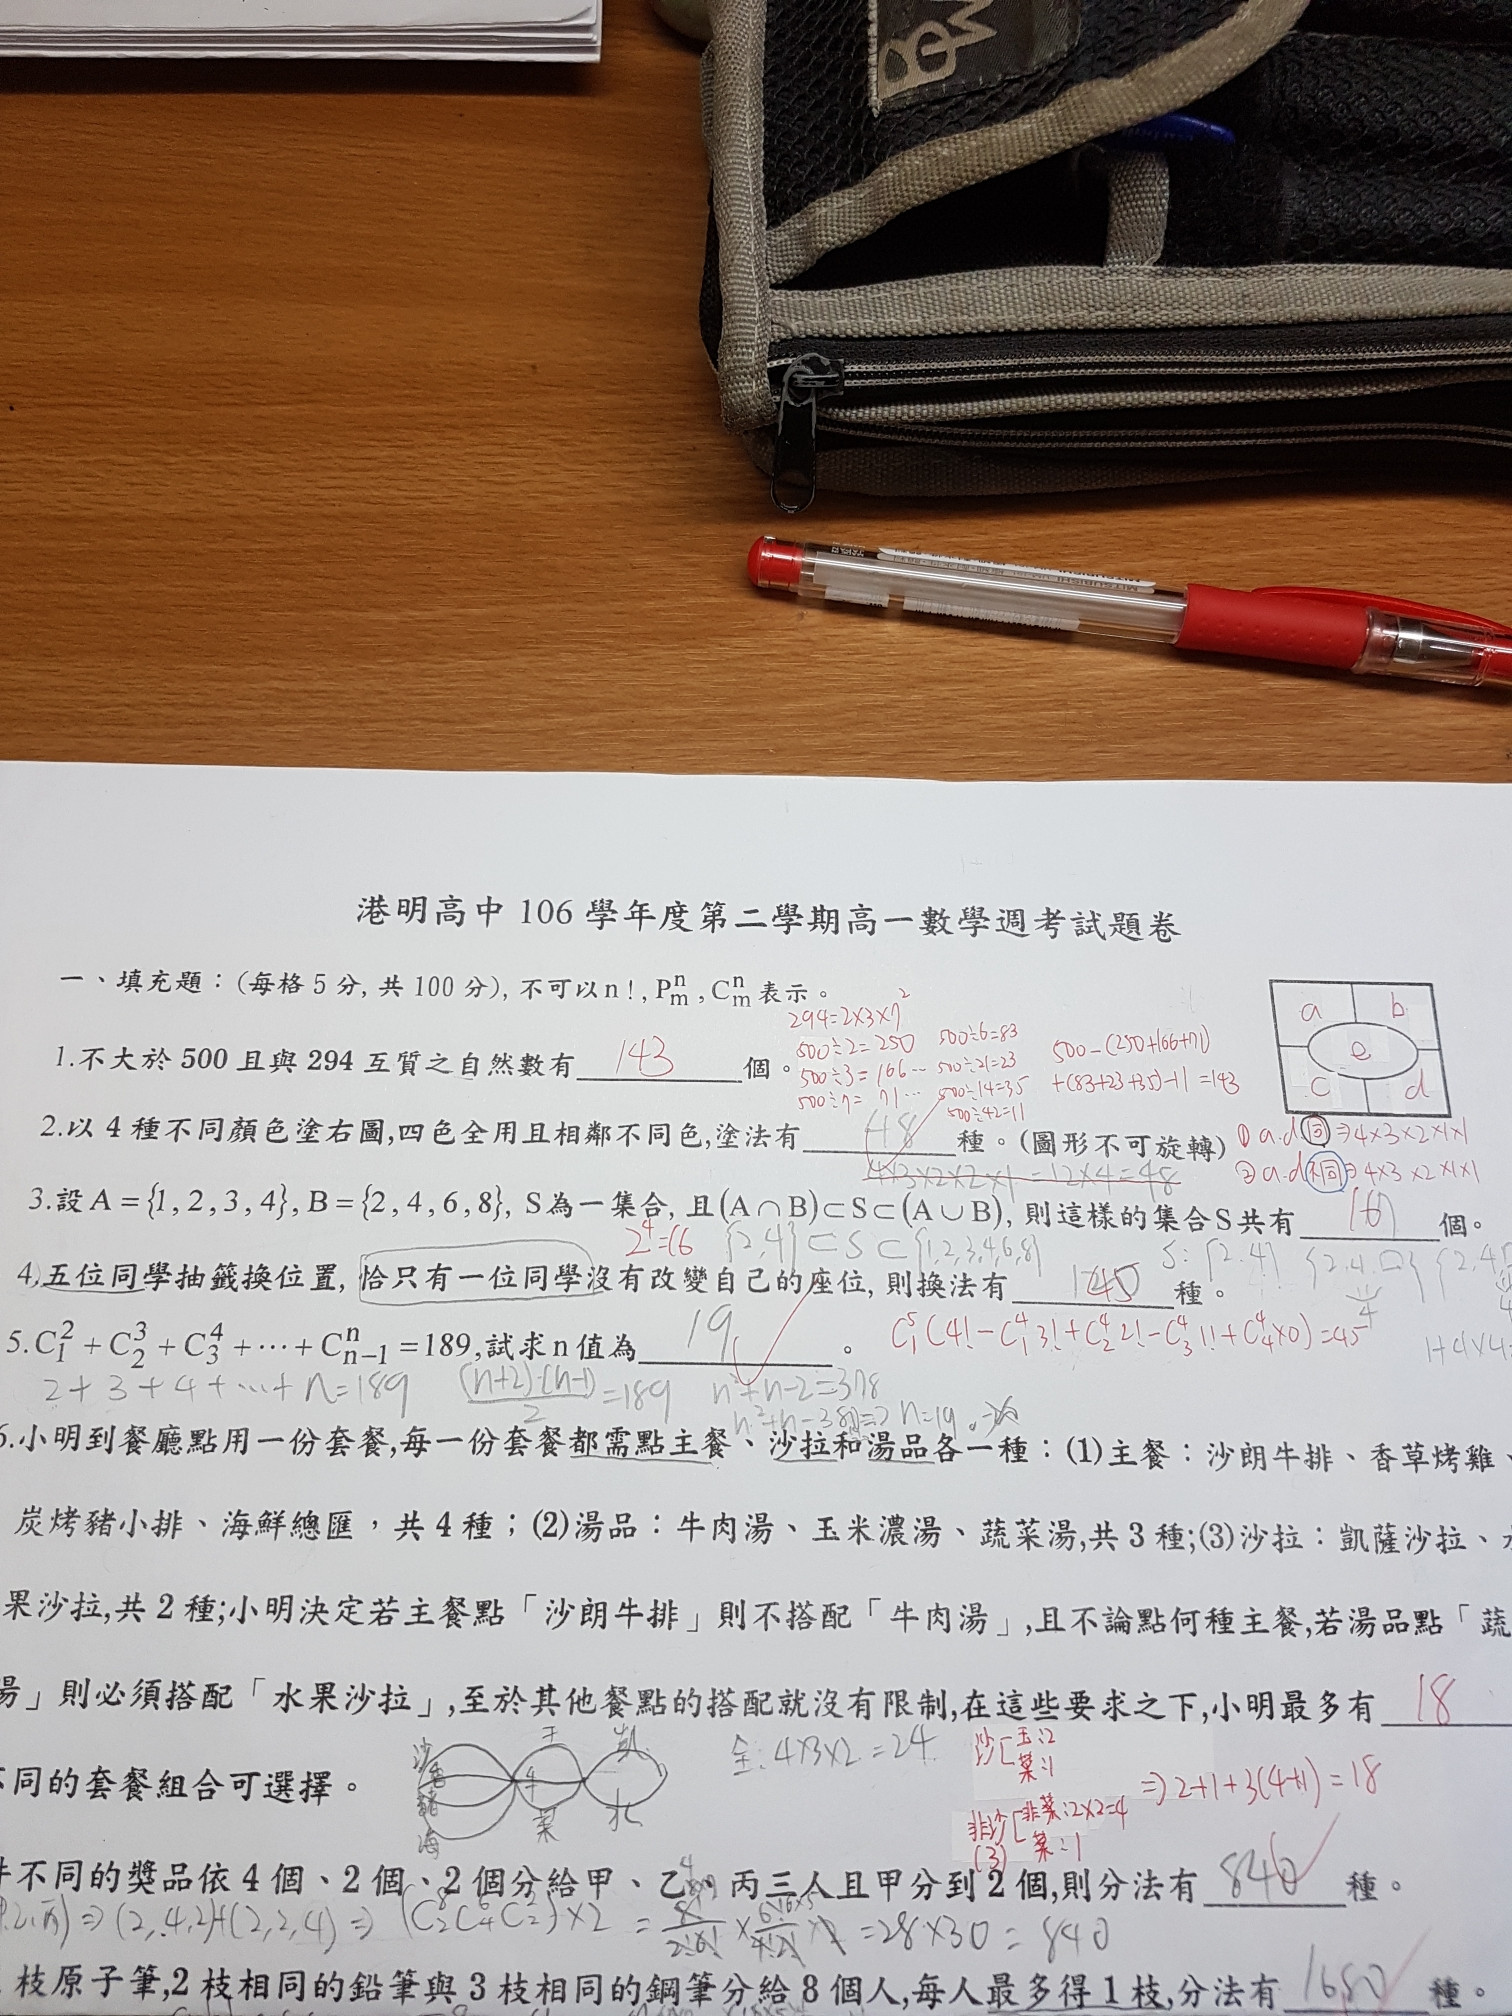 港明高中 106 學年度第二學期高一數學週考試題卷
一、填充題：(每格 5 分, 共 100 分), 不可以 n!, P^n_m, C^n_m 表示。
294=2×3×7²
a b
1.不大於 500 且與 294 互質之自然數有 143 個。
500÷2=250 500÷6=83 500-(250+166+71)
500÷3=166… 500÷21=23 +(83+23+35)-11=143
500÷7=71… 500÷14=35
500÷42=11
e
c d
2.以 4 種不同顏色塗右圖,四色全用且相鄰不同色,塗法有 48 種。(圖形不可旋轉)
① a.d 同 ⇒4×3×2×1×1
② a.d 不同 ⇒4×3×2×1×1
4×3×2×2×1 =12×4=48
3.設 A={1, 2, 3, 4}, B={2, 4, 6, 8}, S為一集合, 且(A∩B)⊂S⊂(A∪B), 則這樣的集合S共有 16 個。
2⁴=16 {2,4}⊂S⊂{1,2,3,4,6,8} S:{2,4} {2,4,□}
4
4.五位同學抽籤換位置, 恰只有一位同學沒有改變自己的座位, 則換法有 45 種。
5.C^2_1+C^3_2+C^4_3+⋯+C^n_{n-1}=189,試求 n 值為 19 。
C^5_1(4!-C^4_1 3!+C^4_2 2!-C^4_3 1!+C^4_4×0)=45
2+3+4+⋯+n=189 (n+2)(n-1)/2=189 n²+n-2=378
n²+n-380 n=19
6.小明到餐廳點用一份套餐,每一份套餐都需點主餐、沙拉和湯品各一種：(1)主餐：沙朗牛排、香草烤雞、
炭烤豬小排、海鮮總匯，共 4 種；(2)湯品：牛肉湯、玉米濃湯、蔬菜湯,共 3 種;(3)沙拉：凱薩沙拉、
果沙拉,共 2 種;小明決定若主餐點「沙朗牛排」則不搭配「牛肉湯」,且不論點何種主餐,若湯品點「蔬
湯」則必須搭配「水果沙拉」,至於其他餐點的搭配就沒有限制,在這些要求之下,小明最多有 18
不同的套餐組合可選擇。
沙 香 豬 海 玉 牛 菜 凱 水
全:4×3×2=24
沙[玉:2 菜:1
⇒2+1+3(4+1)=18
非沙(3)[非菜:2×2=4 菜:1
件不同的獎品依 4 個、2 個、2 個分給甲、乙、丙三人且甲分到 2 個,則分法有 840 種。
⇒(2,4,2)+(2,2,4)⇒(C^8_2 C^6_4 C^2_2)×2 =28×30=840
枝原子筆,2 枝相同的鉛筆與 3 枝相同的鋼筆分給 8 個人,每人最多得 1 枝,分法有 1680 種。